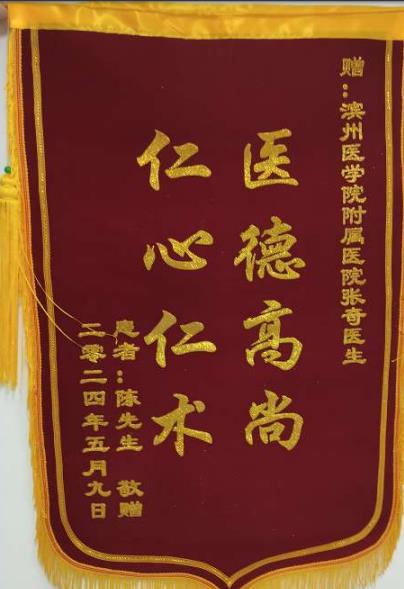 赠：滨州医学院附属医院张奇医生
医德高尚
仁心仁术
患者：陈先生 敬赠
二零二四年五月九日